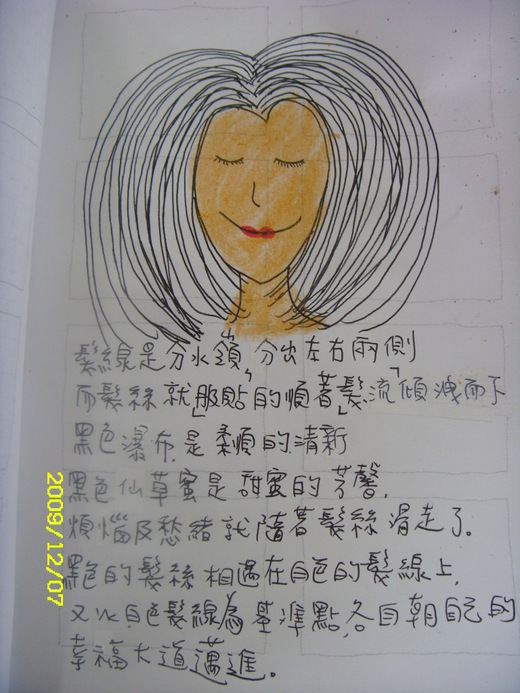 髮線是分水嶺,分出左右兩側
而髮絲就「服貼」的順著「髮流」傾洩而下
黑色瀑布,是柔順的清新
黑色仙草蜜是甜蜜的芳馨,
煩惱及愁緒就隨著髮絲滑走了。
黑色的髮絲相遇在白色的髮線上,
又以白色髮線為基準點,各自朝自己的
幸福大道邁進。
2009/12/07